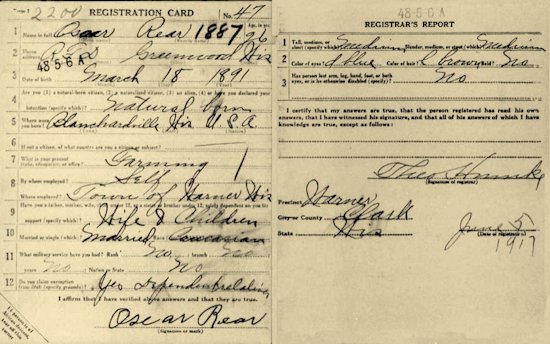 2200 REGISTRATION CARD No. 47
1 Name in full Oscar Rear 1887 26
2 Home address R.F.D. Greenwood Wis
48-5-6-A
3 Date of birth March 18 1891
4 Are you (1) a natural-born citizen, (2) a naturalized citizen, (3) an alien, (4) or have you declared your
intention (specify which)? Natural born
5 Where were you born? Blanchardville Wis U.S.A.
6 If not a citizen, of what country are you a citizen or subject?
7 What is your present trade, occupation, or office? Farming 1
8 By whom employed? Self
Where employed? Town of Warner Wis
9 Have you a father, mother, wife, child under 12, or a sister or brother under 12, solely dependent on you for
support (specify which)? Wife & Children
10 Married or single (which)? Married Race (specify which)? Caucasian
11 What military service have you had? Rank No branch No
years No Nation or State No
12 Do you claim exemption from draft (specify grounds)? Yes Dependent relatives
I affirm that I have verified above answers and that they are true.
Oscar Rear
(Signature or mark)
48-5-6-A
REGISTRAR'S REPORT
1 Tall, medium, or short (specify which)? Medium Slender, medium, or stout (which)? Medium
2 Color of eyes? Blue Color of hair? L brown Bald? No
3 Has person lost arm, leg, hand, foot, or both
eyes, or is he otherwise disabled (specify)? No
I certify that my answers are true, that the person registered has read his own
answers, that I have witnessed his signature, and that all of his answers of which I have
knowledge are true, except as follows:
Theo
(Signature of registrar)
Precinct Warner
City or County Clark
State Wis
June 5
1917
(Date of registration)